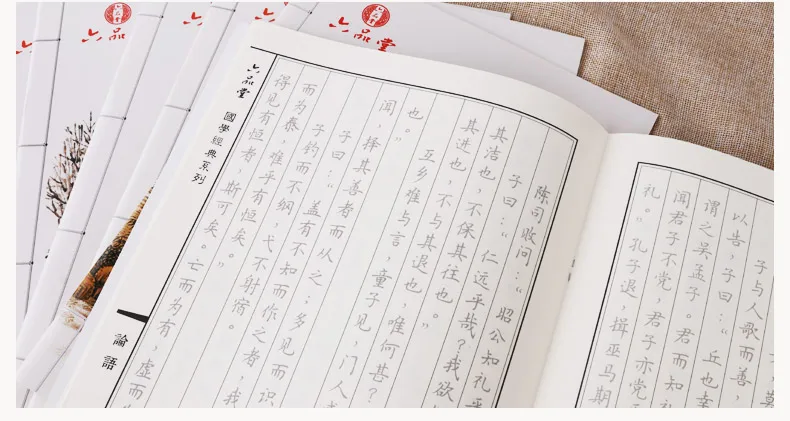 六品堂
六品堂
六品堂
國學經典系列
論語
得见有恒者，斯可矣。亡而为有，虚而
而为泰，难乎有恒矣。”
子钓而不纲，弋不射宿。
子曰：“盖有不知而作之者，我
闻，择其善者而从之；多见而识
也。”
互乡难与言，童子见，门人
其进也，不与其退也，唯何甚？
其洁也，不保其往也。”
子曰：“仁远乎哉？我欲
陈司败问：“昭公知礼乎
礼。”孔子退，揖巫马期
闻君子不党，君子亦党
谓之吴孟子。君而知礼
以告，子曰：“丘也幸
子与人歌而善，